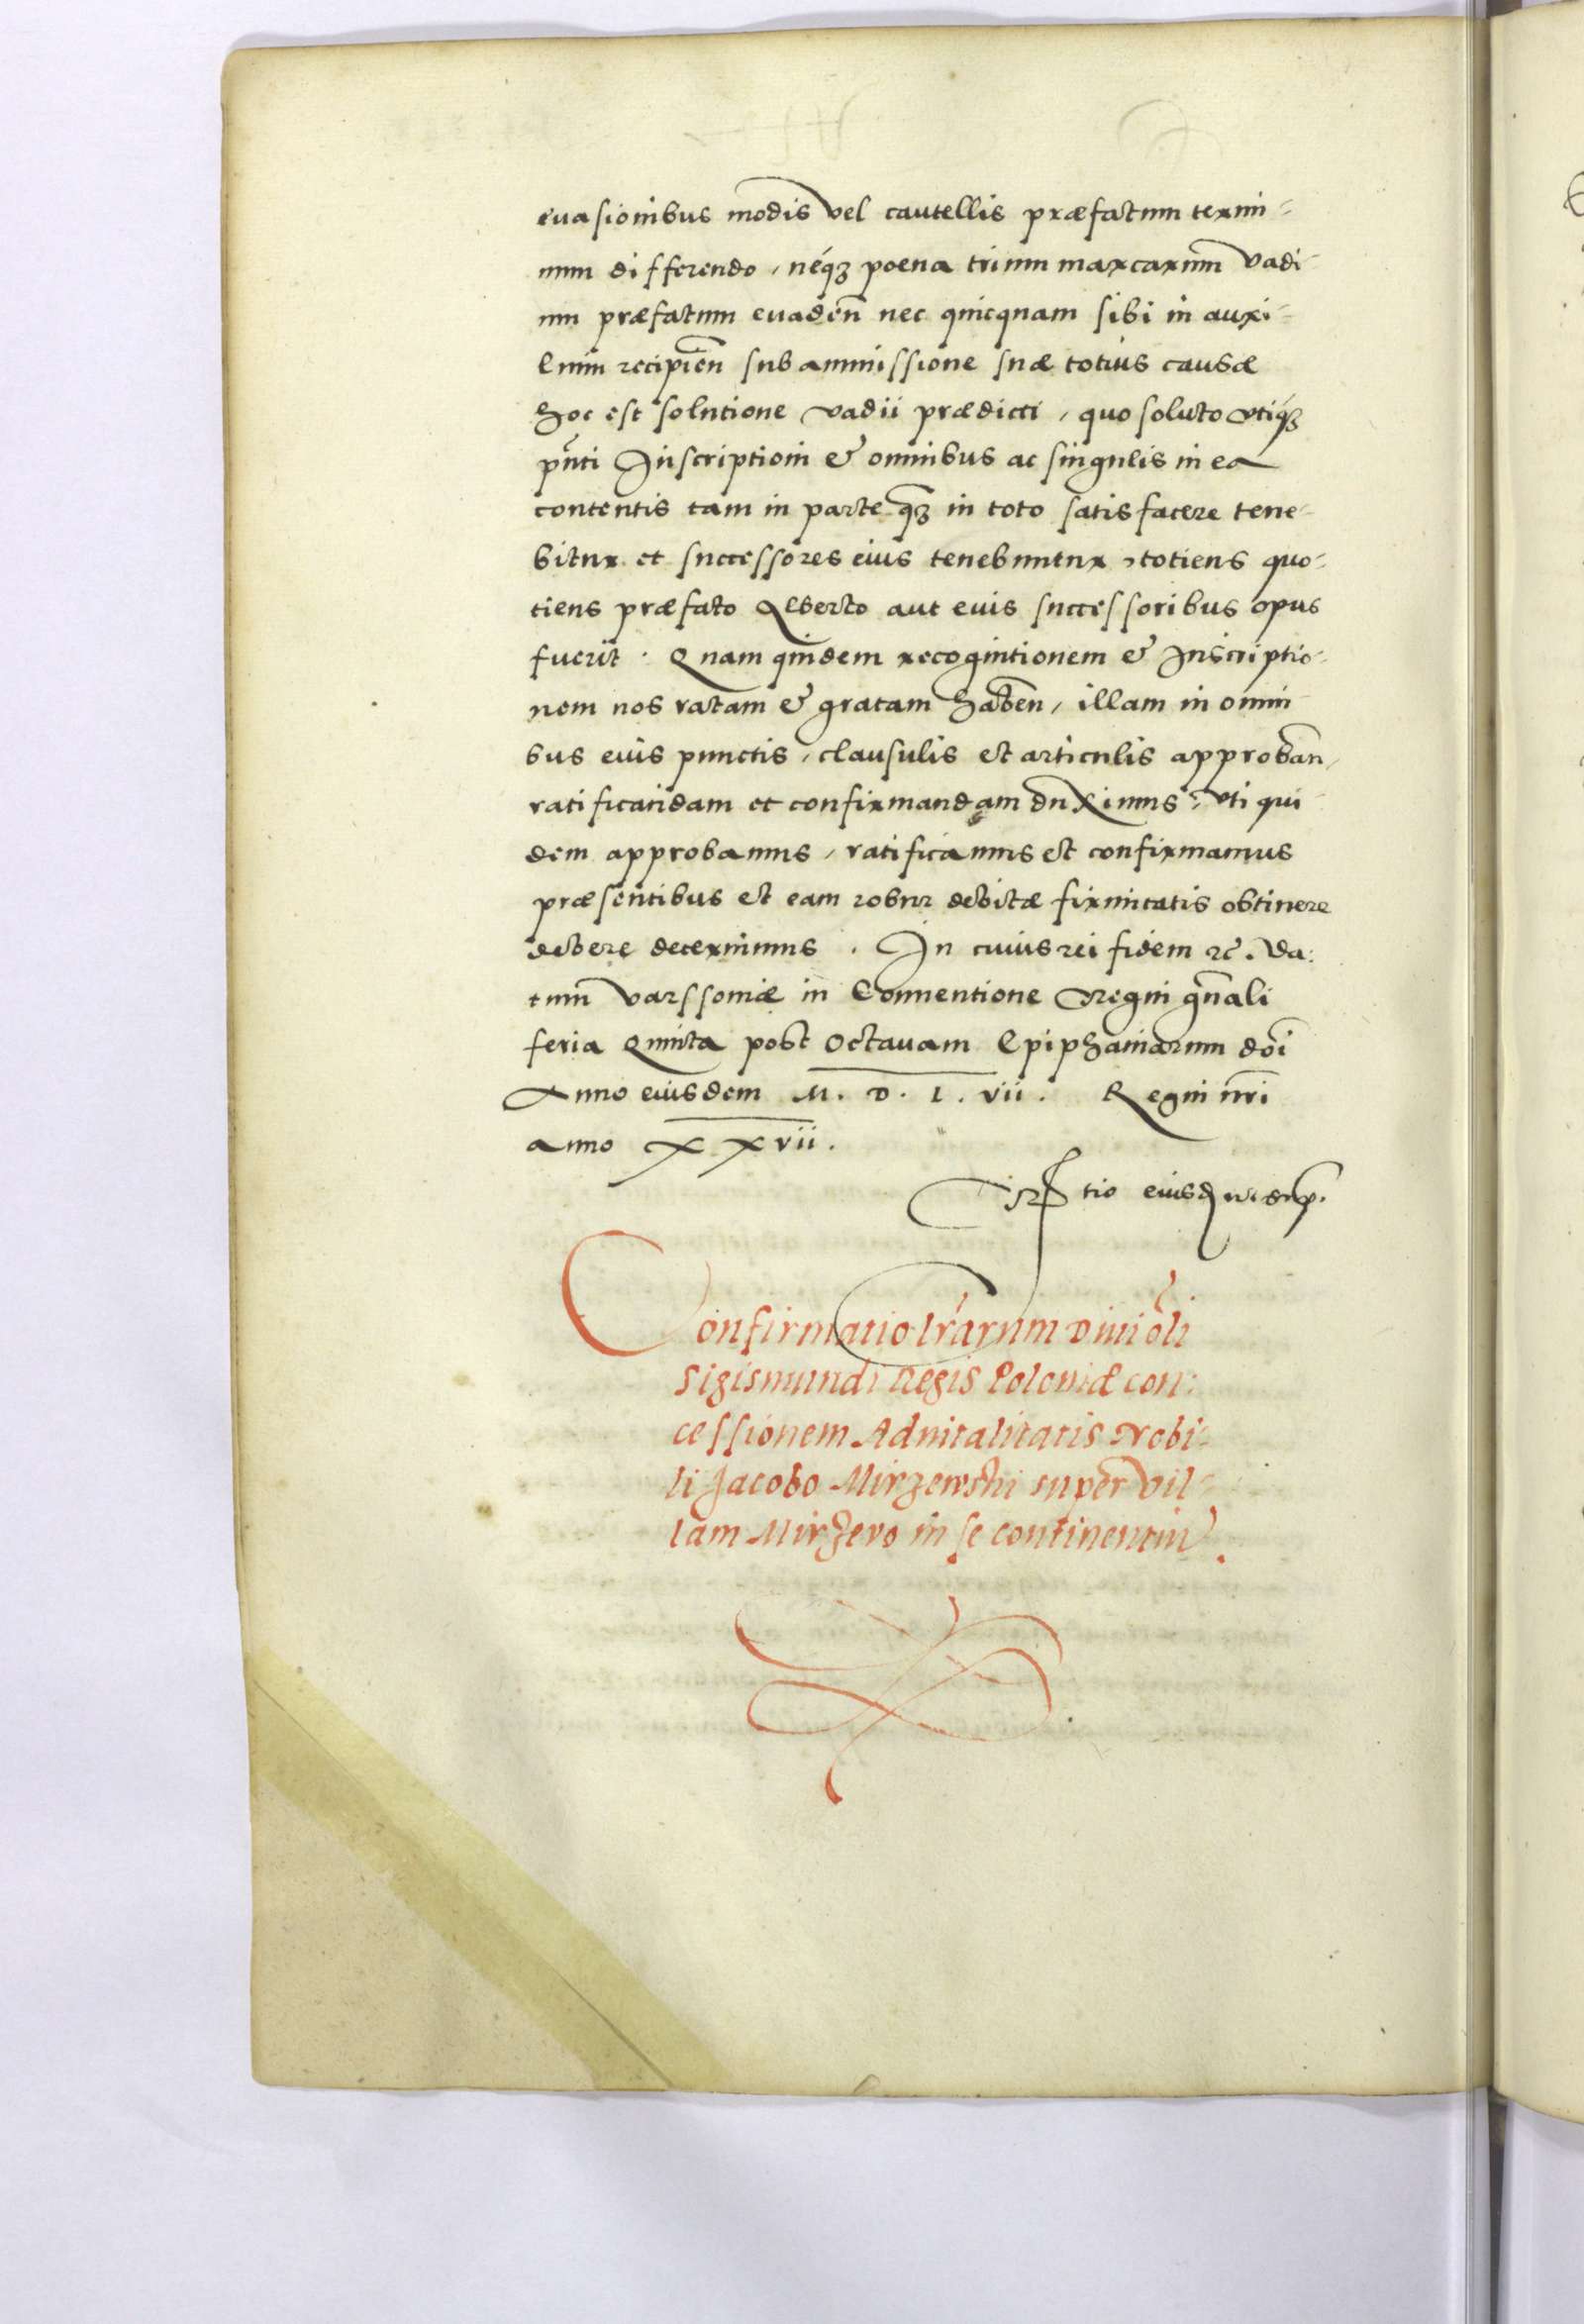 euasionibus modis vel cautellis præfactum termi-
num differendo, neq3 poena trium marcarum vadi-
um præfatum euadeñ nec quicquam sibi in auxi-
lium recipień sub ammissione suæ totius causæ
hoc est solutione vadii prædicti, quo soluto vtiq3
pñti Inscriptioni & omnibus ac singulis in ea
contentis tam in parte q̃3 in toto satisfacere tene-
bitur et successores eius tenebuntur, totiens quo-
tiens præfato Alberto aut eius successoribus opus
fuerit. Quam quidem recognitionem & Inscriptio-
nem nos ratam & gratam habeñ, illam in omni
bus eius punctis, clausulis et articulis approbañ,
ratificandam et confirmandam duximus, vti qui
dem approbamus, ratificamus et confirmamus
præsentibus et eam robur debitæ firmitatis obtinere
debere decernimus. In cuius rei fidem ꝛc̃. Da:
tum Varssouiæ in Conuentione Regni gñali
feria Quinta post Octauam Epiphaniarum doi
Anno eiusdem M. D. L. vii. Regni nri
anno XXvii.
tio eiusd
Confirmatio lr̃arum Diui oli
Sigismundi Regis Poloniæ con:
cessionem Aduitalitatis Nobi-
li Jacobo Mirzewski super vil-
lam Mirzewo in se continentiũ.